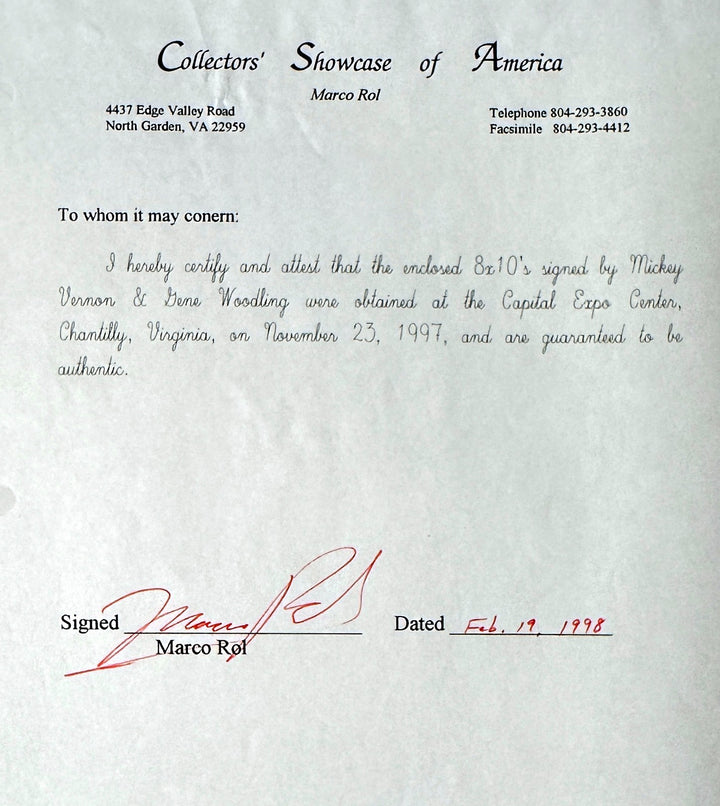 Collectors' Showcase of America
Marco Rol
4437 Edge Valley Road
North Garden, VA 22959
Telephone 804-293-3860
Facsimile 804-293-4412
To whom it may conern:
I hereby certify and attest that the enclosed 8x10's signed by Mickey
Vernon & Gene Woodling were obtained at the Capital Expo Center,
Chantilly, Virginia, on November 23, 1997, and are guaranteed to be
authentic.
Signed Marco Rol Dated Feb. 19, 1998
Marco Rol